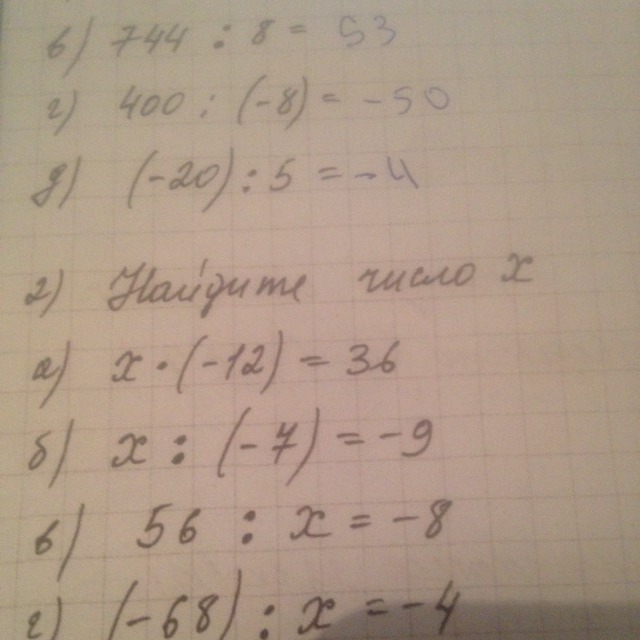 в) 744 : 8 = 53
г) 400 : (-8) = -50
д) (-20) : 5 = -4
2) Найдите число x
а) x · (-12) = 36
б) x : (-7) = -9
в) 56 : x = -8
г) (-68) : x = -4